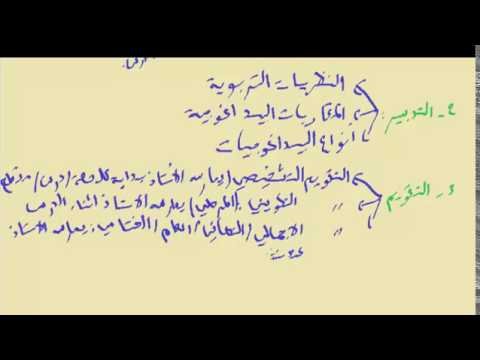 النظريات التربوية
2- التدبير: المقاربات البيداغوجية
أنواع البيداغوجيات
3- التقويم: التقويم التشخيصي / يمارسه الأستاذ بداية / درس / مقطع
" التكويني / المرحلي / يمارسه الأستاذ أثناء الدرس
" الإجمالي / النهائي / العام / الختامي: يمارسه الأستاذ